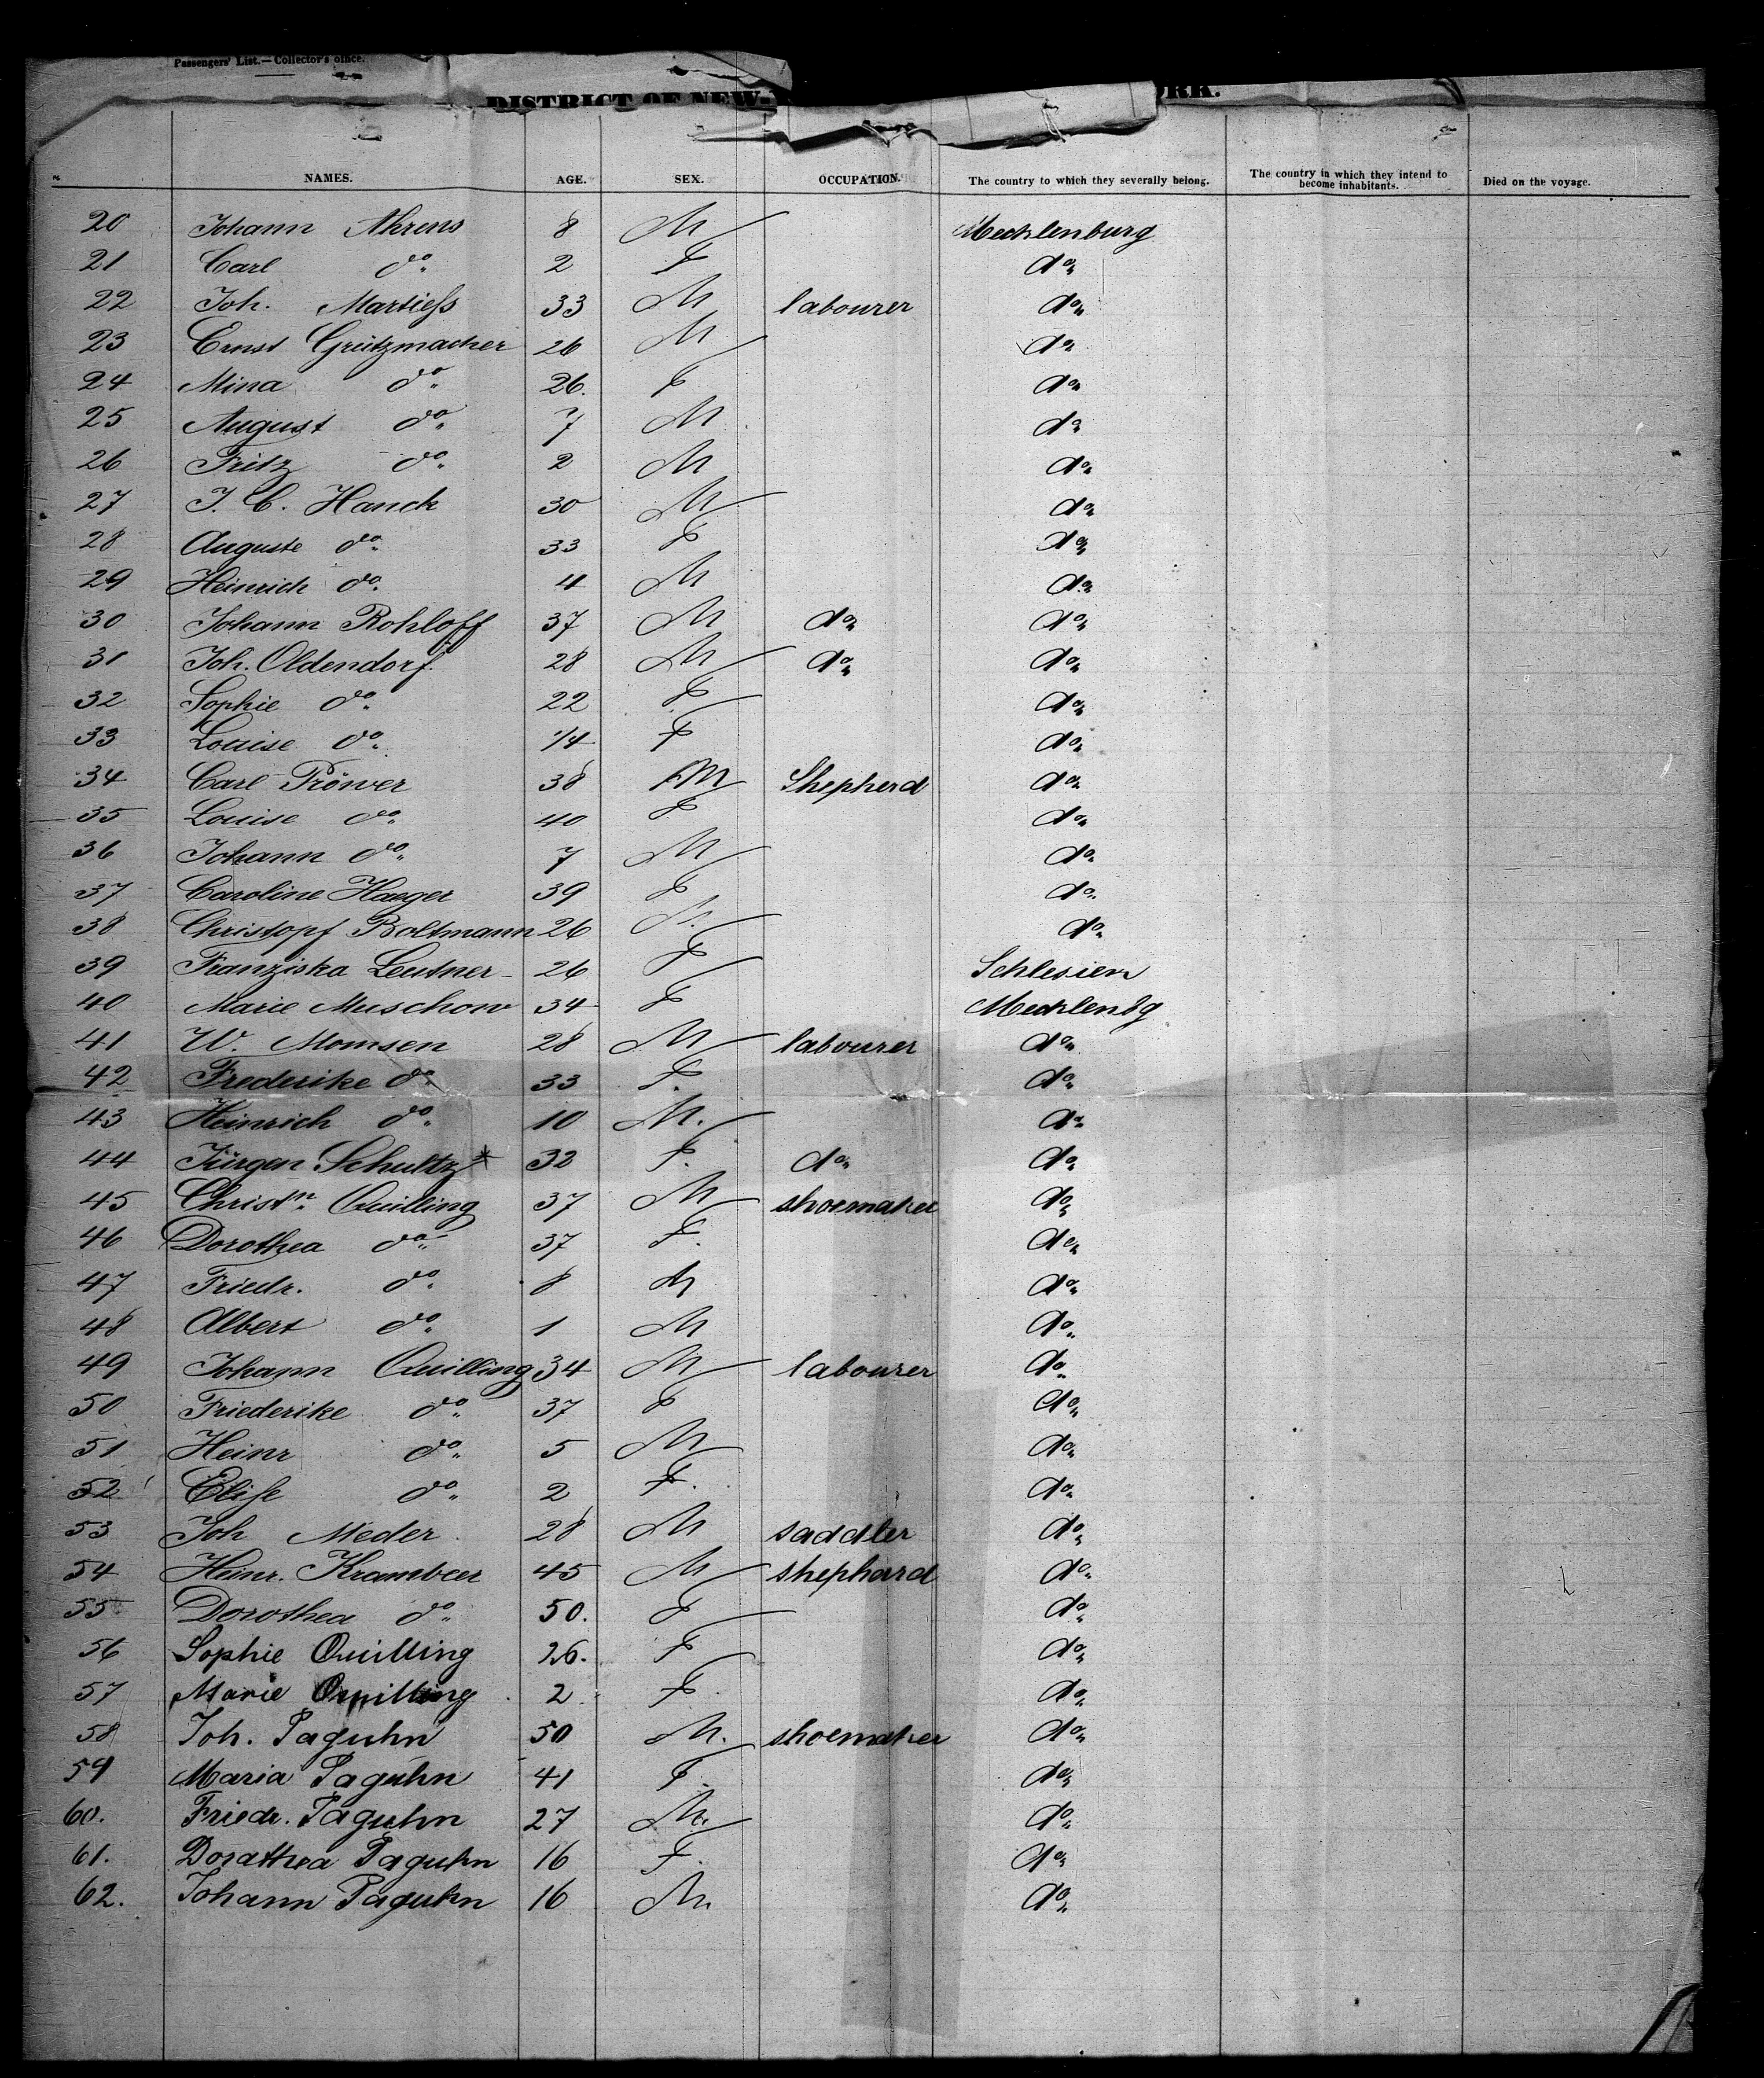 Passengers' List.—Collector's office.
DISTRICT OF NEW- ORK.
NAMES. AGE. SEX. OCCUPATION. The country to which they severally belong. The country in which they intend to become inhabitants. Died on the voyage.
20 Johann Ahrens 8 M Mecklenburg
21 Carl do 2 F do
22 Joh. Martiess 33 M labourer do
23 Ernst Grützmacher 26 M do
24 Mina do 26. F do
25 August do 7 M do
26 Fritz do 2 M do
27 J. C. Hanck 30 M do
28 Auguste do 33 F do
29 Heinrich do 4 M do
30 Johann Rohloff 37 M do do
31 Joh. Oldendorf 28 M do do
32 Sophie do 22 F do
33 Louise do 1/4 F do
34 Carl Pröwer 38 M Shepherd do
35 Louise do 40 F do
36 Johann do 7 M do
37 Caroline Haeger 39 F do
38 Christopf Boltmann 26 M. do
39 Franziska Leutner 26 F Schlesien
40 Marie Muschow 34 F Mecklenbg
41 W. Momsen 28 M labourer do
42 Frederike do 33 F. do
43 Heinrich do 10 M. do
44 Jürgen Schultz* 32 F. do do
45 Christn. Quilling 37 M shoemaker do
46 Dorothea do 37 F. do
47 Friedr. do 8 M do
48 Albert do 1 M do
49 Johann Quilling 34 M labourer do
50 Friederike do 37 F do
51 Heinr do 5 M do
52 Elise do 2 F. do
53 Joh Meder 28 M saddler do
54 Heinr. Krambeer 45 M shephard do
55 Dorothea do 50. F do
56 Sophie Quilling 26. F do
57 Marie Quilling 2 F do
58 Joh. Paguhn 50 M. shoemaker do
59 Maria Paguhn 41 F. do
60. Friedr. Paguhn 27 M. do
61. Dorathea Paguhn 16 F. do
62. Johann Paguhn 16 M. do